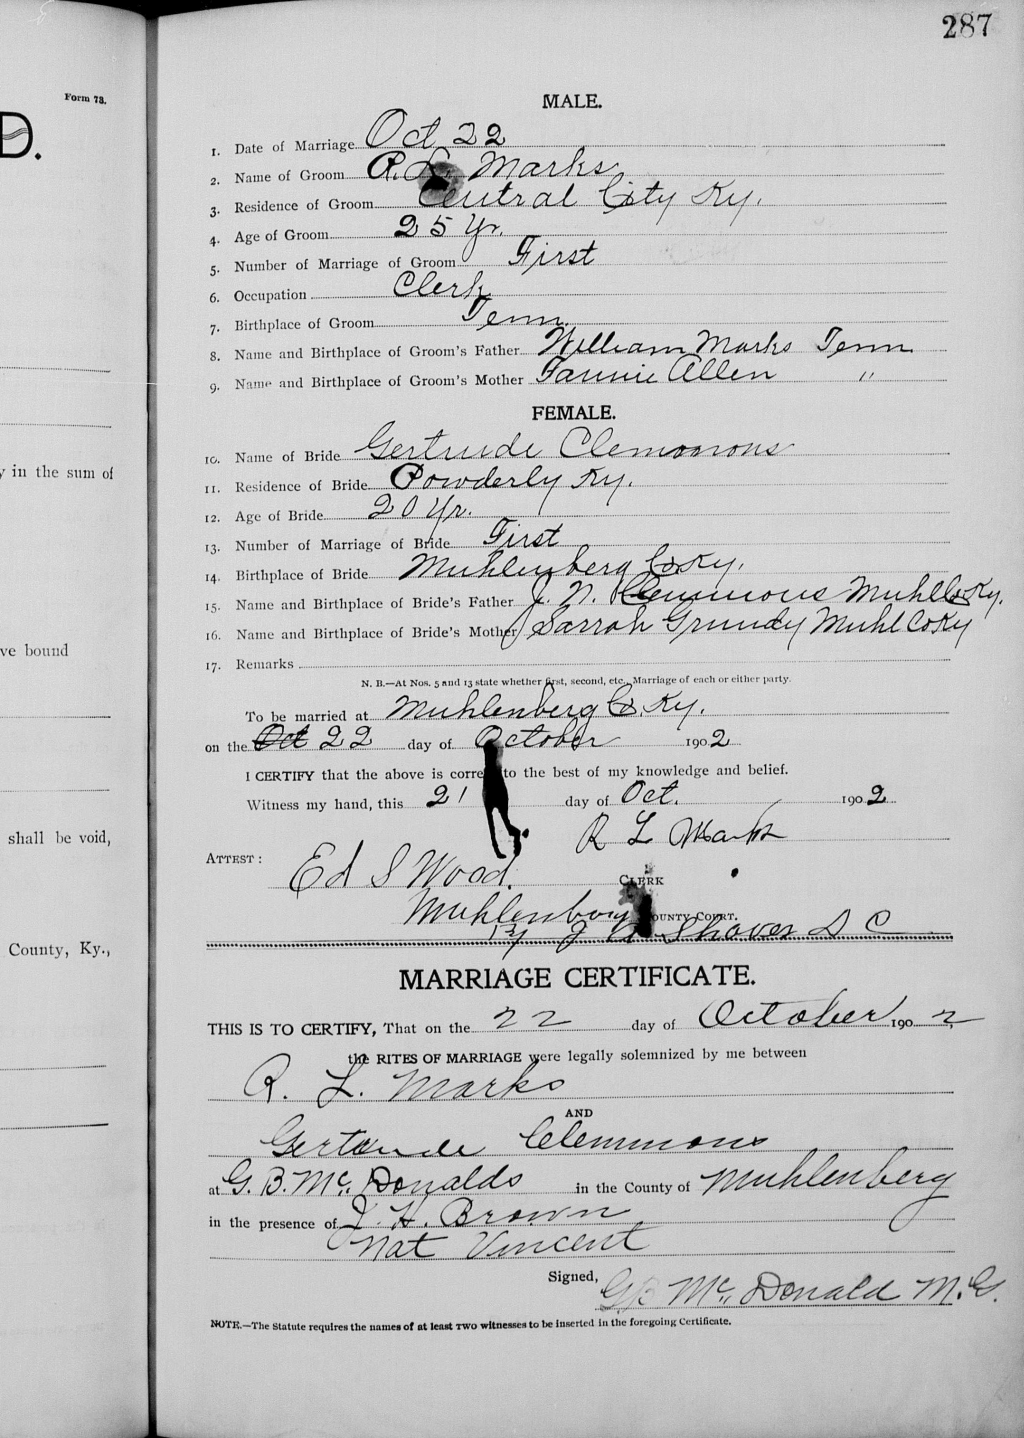 287
Form 73.
D.
y in the sum of
ve bound
shall be void,
County, Ky.,
MALE.
1. Date of Marriage Oct 22
2. Name of Groom R. L. Marks
3. Residence of Groom Central City Ky.
4. Age of Groom 25 Yr.
5. Number of Marriage of Groom First
6. Occupation Clerk
7. Birthplace of Groom Tenn.
8. Name and Birthplace of Groom's Father William Marks Tenn
9. Name and Birthplace of Groom's Mother Fannie Allen "
FEMALE.
10. Name of Bride Gertrude Clemmons
11. Residence of Bride Powderly Ky.
12. Age of Bride 20 Yr.
13. Number of Marriage of Bride First
14. Birthplace of Bride Muhlenberg Co Ky.
15. Name and Birthplace of Bride's Father J. N. Clemmons Muhl Co Ky.
16. Name and Birthplace of Bride's Mother Sarrah Grundy Muhl Co Ky
17. Remarks
N. B.—At Nos. 5 and 13 state whether first, second, etc., Marriage of each or either party.
To be married at Muhlenberg Co. Ky.
on the Oct 22 day of October 1902
I CERTIFY that the above is correct to the best of my knowledge and belief.
Witness my hand, this 21 day of Oct. 1902
R L Marks
ATTEST: Ed S Wood. CLERK
Muhlenberg COUNTY COURT.
By J A Shaver D C
MARRIAGE CERTIFICATE.
THIS IS TO CERTIFY, That on the 22 day of October 1902
the RITES OF MARRIAGE were legally solemnized by me between
R. L. Marks
AND
Gertrude Clemmons
at G. B. Mc. Donalds in the County of Muhlenberg
in the presence of J. H. Brown
Nat Vincent
Signed, G B Mc. Donald M. G.
NOTE.—The Statute requires the names of at least TWO witnesses to be inserted in the foregoing Certificate.